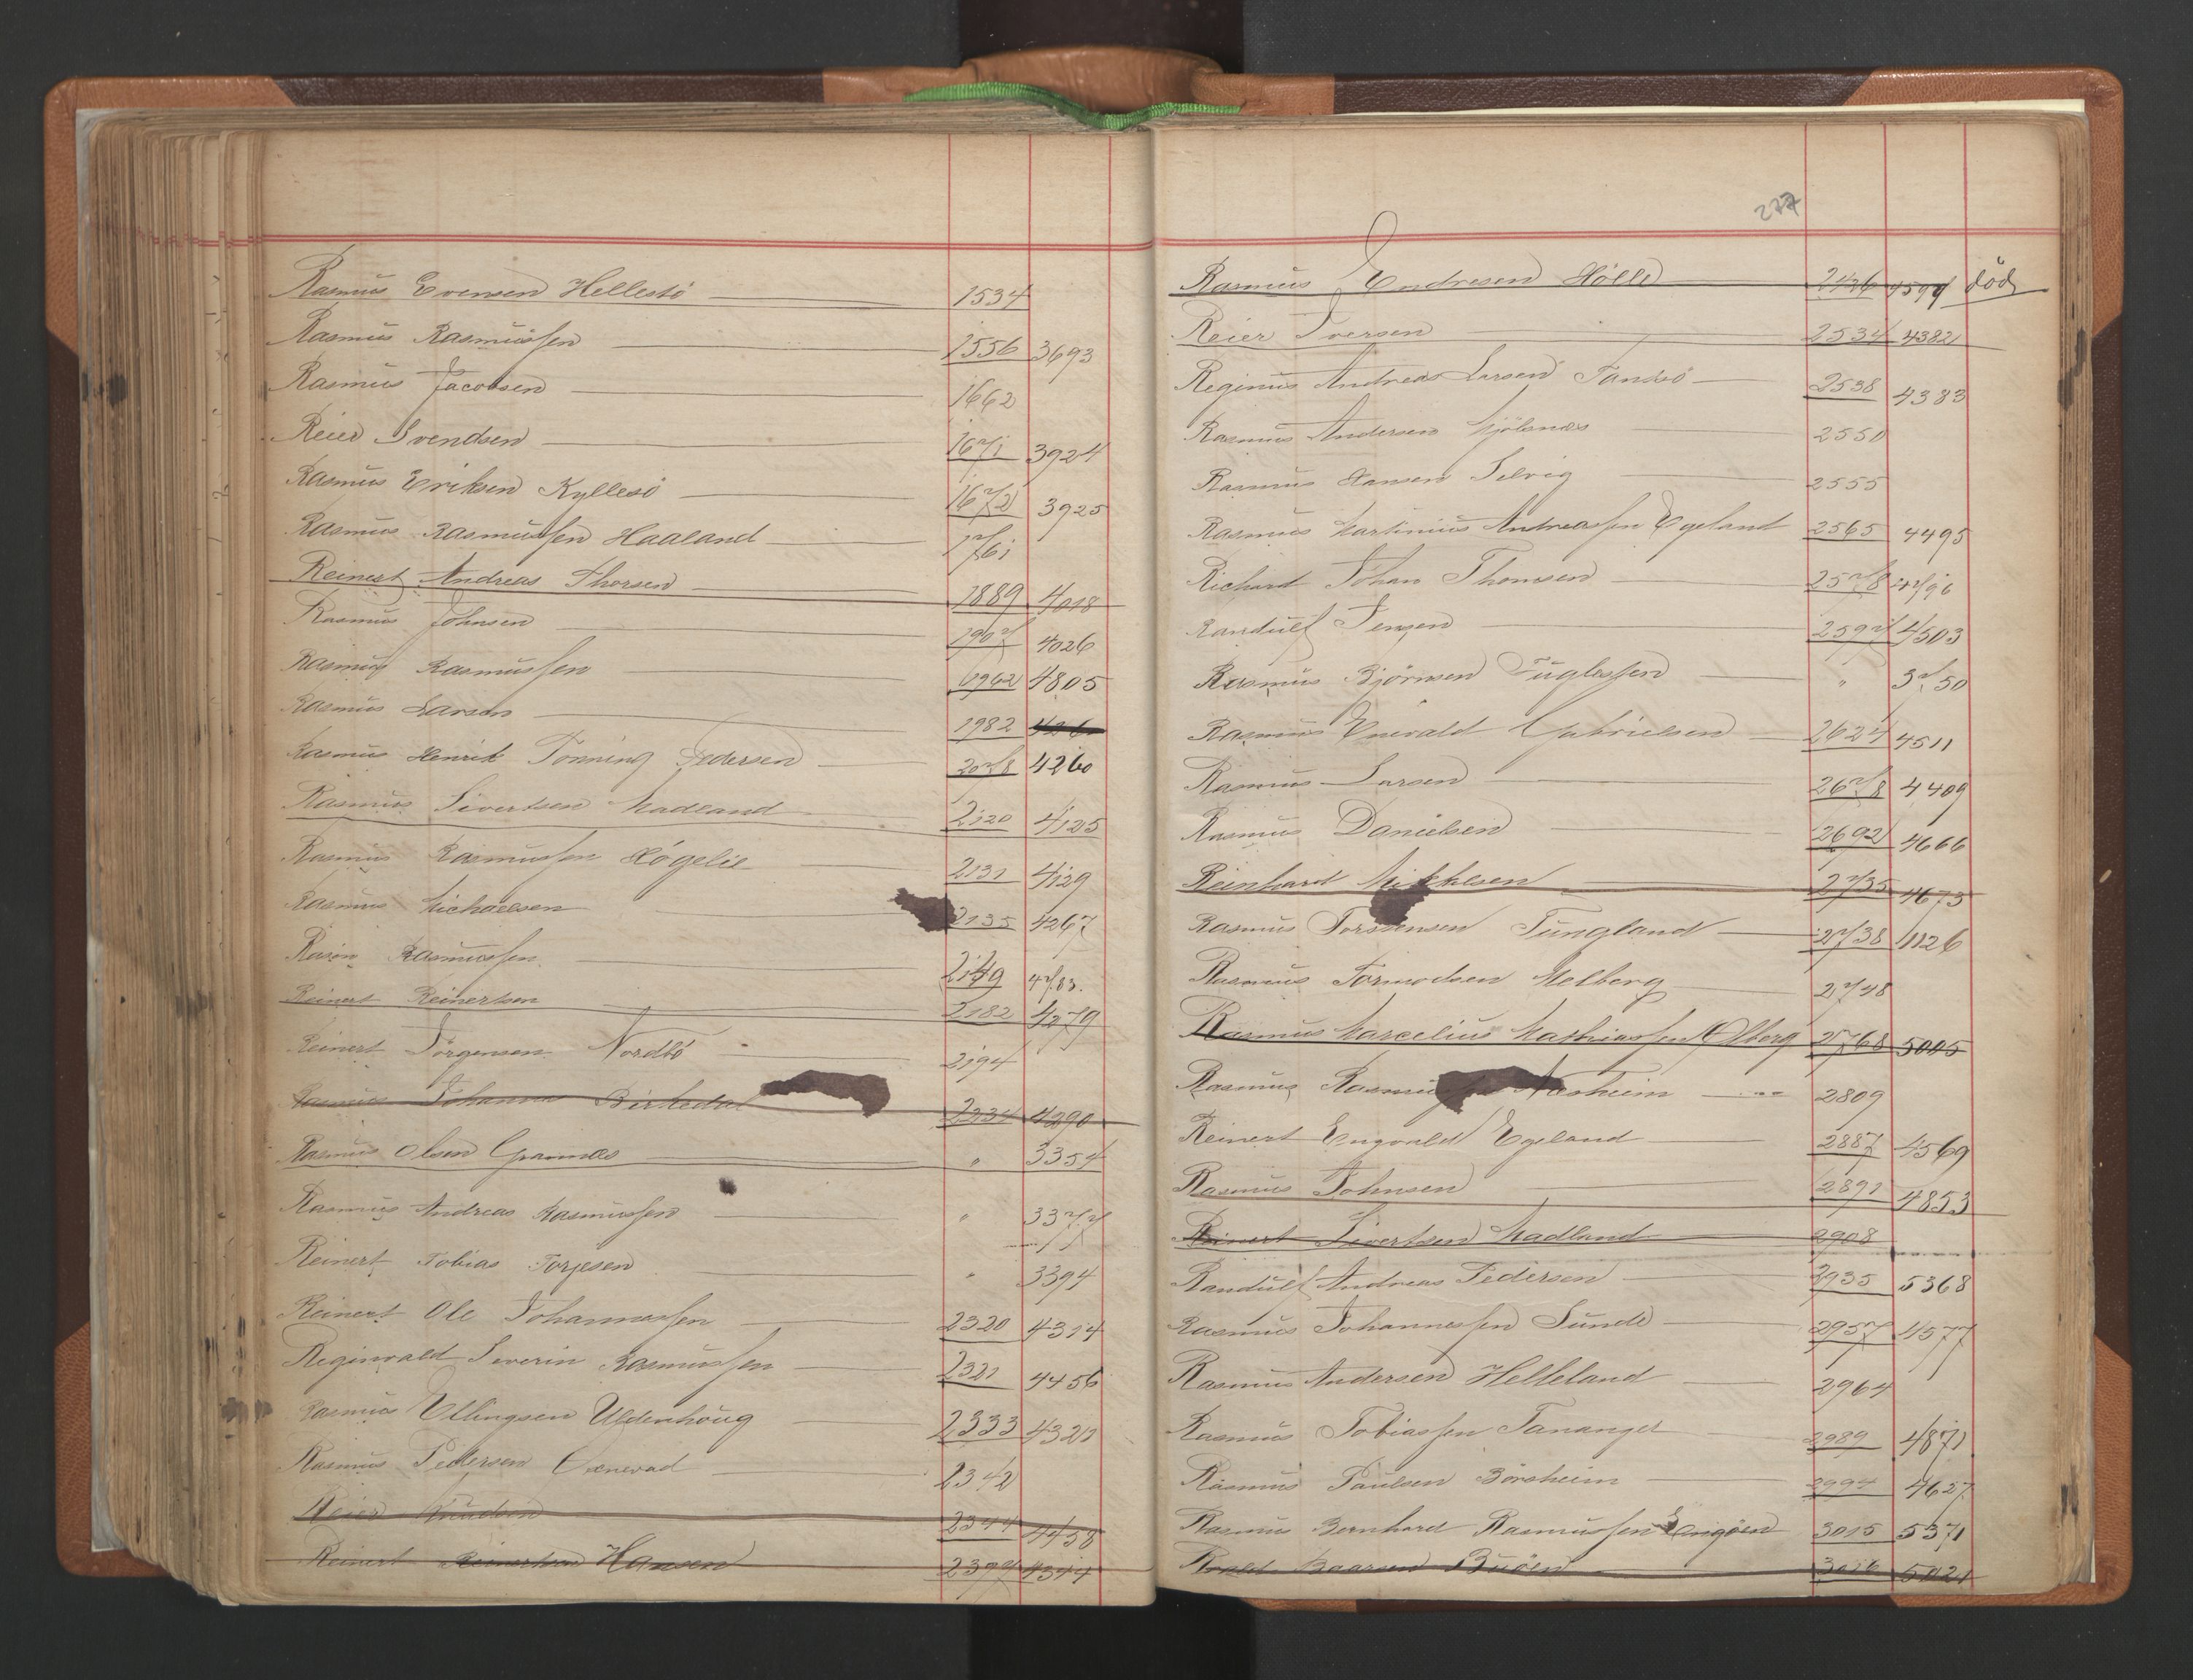 Rasmus Evensen Hellestö 1534
Rasmus Rasmussen 1556 3693
Rasmus Jacobsen 1662
Reier Svendsen 1671 3924
Rasmus Eriksen Kyllesö 1672 3925
Rasmus Rasmussen Haaland 1761
Reinert Andreas Thorsen 1889 4018
Rasmus Johnsen 1907 4026
Rasmus Rasmussen 1962 4805
Rasmus Larsen 1982
Rasmus Henrik Tonning Pedersen 2078 4260
Rasmus Sivertsen Madland 2120 4125
Rasmus Rasmussen Högelie 2131 4129
Rasmus Michaelsen 2135 4267
Rasmussen 2149 4783.
Reinert Reinertsen 2182 4279
Reinert Jörgensen Nordbö 2194
Rasmus Johannes Birkedal 2234 4290
Rasmus Olsen Grannæs " 3354
Rasmus Andreas Rasmussen " 3377
Reinert Tobias Torjesen " 3394
Reinert Ole Johannessen 2320 4314
Reginvald Severin Rasmussen 2321 4456
Rasmus Ellingsen Uldenhoug 2333 4321
Rasmus Pedersen 2342
Reier Knudsen 2344 4458
Reinert Reinertsen Hansen 2397 4344
277
Rasmus Endresen Hölle 2436 4597 död
Reier Iversen 2534 4382
Reginus Andreas Larsen Tansö 2538 4383
Rasmus Andersen Mjölsnæs 2550
Rasmus Hansen Selvig 2555
Rasmus Martinius Andreassen Egeland 2565 4495
Richard Johan Thomsen 2578 4796
Randulf Jensen 2597 4503
Rasmus Björnsen Fuglessen " 3750
Rasmus Enevald Gabrielsen 2624 4511
Rasmus Larsen 2678 4409
Rasmus Danielsen 2692 4666
Reinhard Mikkelsen 2735 4673
Rasmus Torstensen Tungland 2738 1126
Rasmus Tormodsen Melberg 2748
Rasmus Marcelius Mathiassen Olberg 2768 5005
Rasmus Rasmussen Næsheim 2809
Reinert Engvald Egeland 2887 4569
Rasmus Johnsen 2891 4853
Reinert Sivertsen Madland 2908
Randulf Andreas Pedersen 2935 5368
Rasmus Johannessen Sunde 2957 4577
Rasmus Andersen Helleland 2964
Rasmus Tobiassen Tananger 2989 4871
Rasmus Paulsen Börsheim 2994 4627
Rasmus Bernhard Rasmussen Engöen 3015 5371
Roald Baarsen Buöen 3016 5021